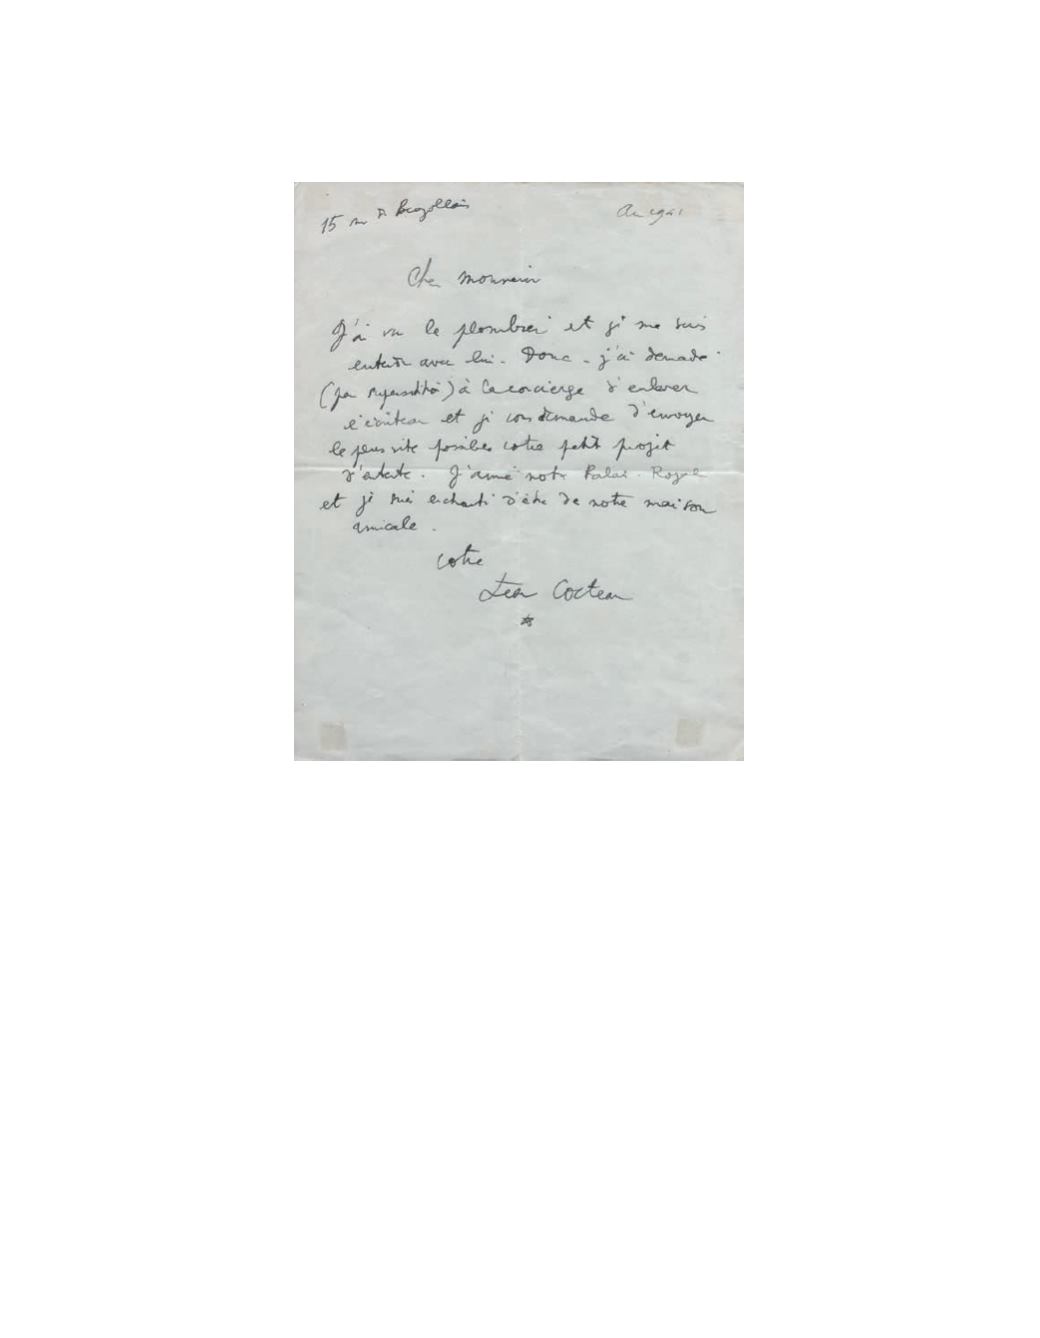 15 rue de Beaujolais
Cher monsieur
J'ai vu le plombier et je me suis
entendu avec lui. Donc - j'ai demandé
(par superstition) à la concierge d'enlever
l'écriteau et je vous demande d'envoyer
le plus vite possible votre petit projet
d'entente. J'aime notre Palais-Royal
et je suis enchanté d'être de notre maison
amicale.
votre
Jean Cocteau